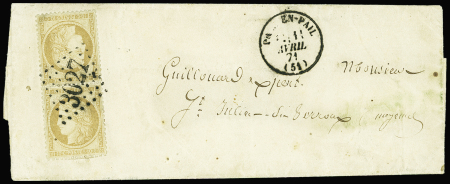 PRÉ-EN-PAIL
11
AVRIL
71
(51)
3022
Monsieur
Guillouard expert
St Julien du Terroux (mayenne)